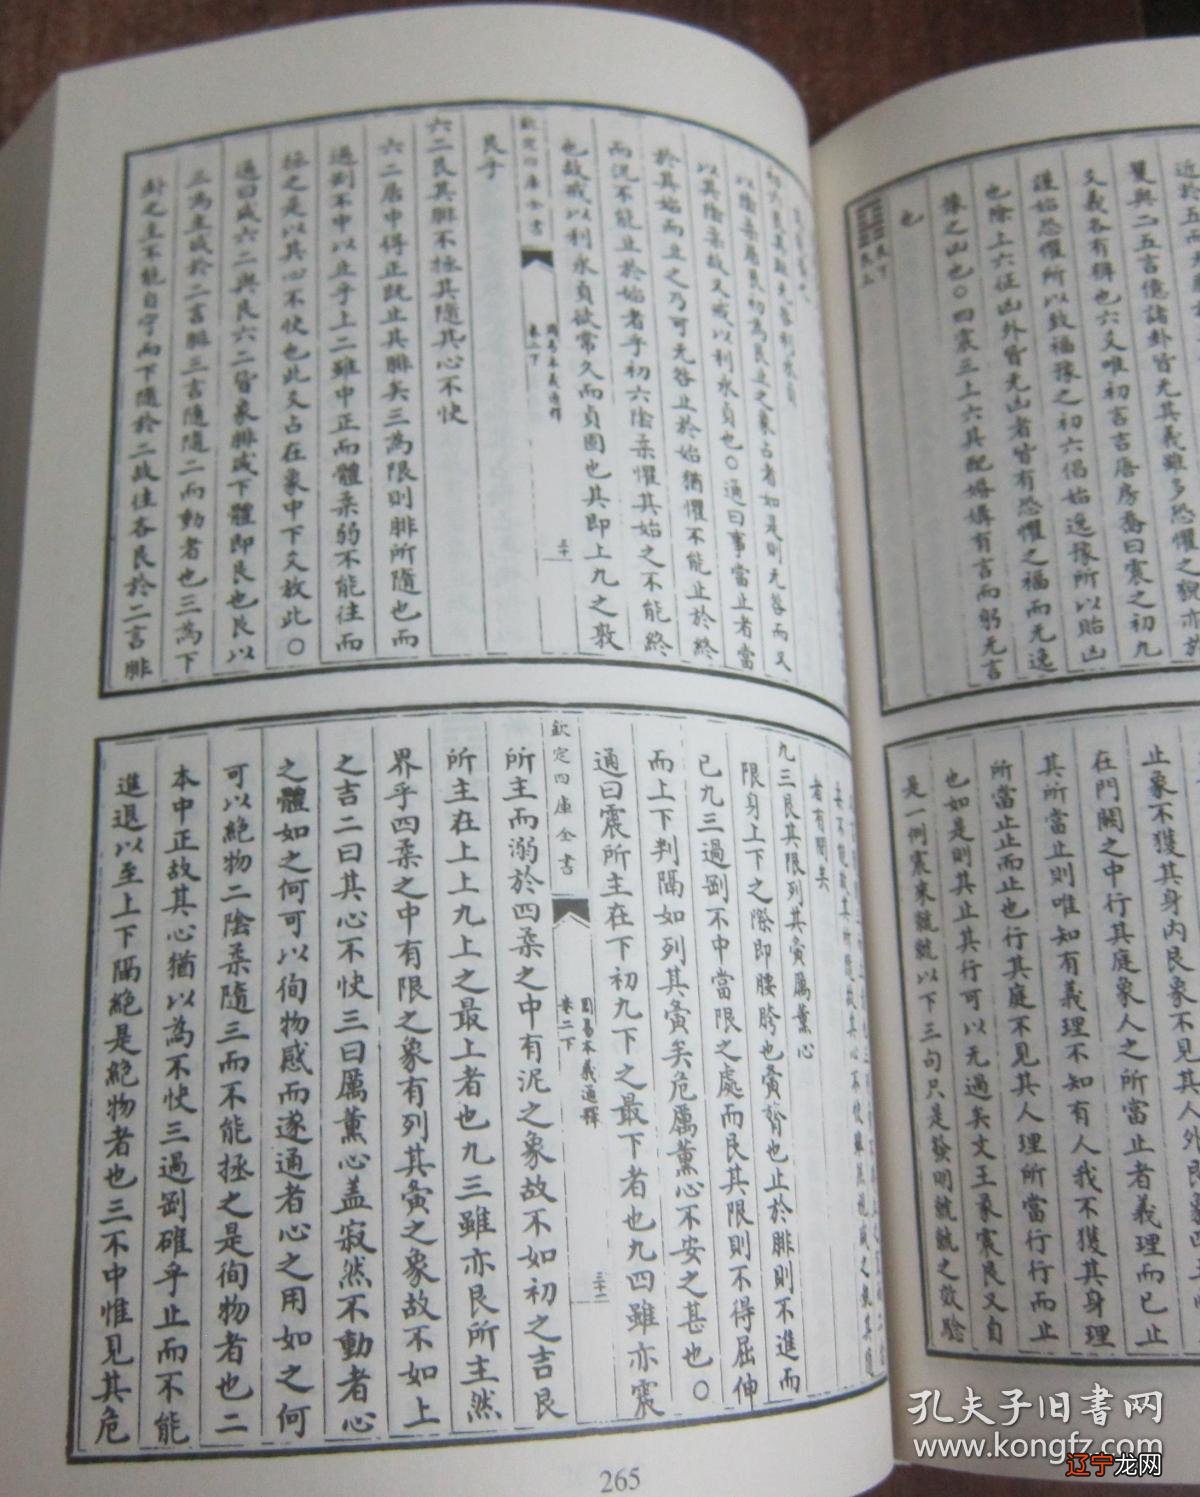 近於五而
翼與二五言億諸卦皆无其義雖多恐懼之猊亦於
爻義各有稱也六爻唯初言言唐房喬曰震之初九
謹始恐懼所以致福豫之初六倡始逸豫所以貽凶
也除上六征凶外皆无凶者皆有恐懼之福而无逸
豫之凶也○四震三上六其配婚媾有言而躬无言
也
艮下
艮上
止象不獲其身內艮象不見其人外
在門闕之中行其庭象人之所當止者義理而已止
其所當止則唯知有義理不知有人我不獲其身理
所當止止而止也行其庭不見其人理所當行行而止
也如是則其止其行可以无過矣文王彖震艮又自
是一例震來虩虩以下三句只是發明虩虩之效驗
初六艮其趾无咎利永貞
以陰柔居艮初為艮止之象占者如是則无咎而又
以其陰柔故又戒以利永貞也○通曰事當止者當
於其始而止之乃可无咎止於始猶懼不能止於終
而況不能止於始者乎初六陰柔懼其始之不能終
也故戒以利永貞欲常久而貞固也其即上九之敦
欽定四庫全書
周易本義通釋
卷二下
三十一
艮乎
六二艮其腓不拯其隨其心不快
六二居中得正既止其腓矣三為限則腓所隨也而
過剛不中以止乎上二雖中正而體柔弱不能往而
拯之是以其心不快也此爻占在象中下爻放此○
通曰咸六二與艮六二皆象腓咸下體即艮也艮以
三為主咸於二言腓三言隨隨二而動者也三為下
卦之主不能自守而下隨於二故往吝艮於二言腓
者有間矣
九三艮其限列其夤厲薰心
限身上下之際即腰胯也夤膂也止於腓則不進而
已九三過剛不中當限之處而艮其限則不得屈伸
而上下判隔如列其夤矣危厲薰心不安之甚也○
通曰震所主在下初九下之最下者也九四雖亦震
欽定四庫全書
周易本義通釋
卷二下
三十二
所主而溺於四柔之中有泥之象故不如初之吉艮
所主在上上九上之最上者也九三雖亦艮所主然
界乎四柔之中有限之象有列其夤之象故不如上
之吉二曰其心不快三曰厲薰心蓋寂然不動者心
之體如之何可以徇物感而遂通者心之用如之何
可以絕物二陰柔隨三而不能拯之是徇物者也二
本中正故其心猶以為不快三過剛確乎止而不能
進退以至上下隔絕是絕物者也三不中惟見其危
265
孔夫子旧书网
www.kongfz.com
辽宁龙网